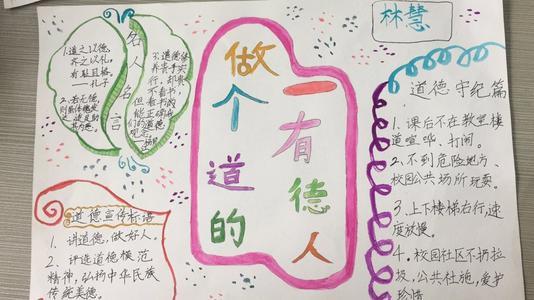 名人名言
1.道之以德,
齐之以礼,
有耻且格。
——孔子
2、若无德,
道德宣传标语
1. 讲道德,做好人。
2. 评选道德模范
精神,弘扬中华民族
传统美德。
做一个有道德的人
林慧
道德守纪篇
1. 课后不在教室楼
道喧哗、打闹。
2、不到危险地方、
校园公共场所玩耍。
3.上下楼梯右行,速
度放慢。
4. 校园社区不扔垃
圾,公共社施,爱护